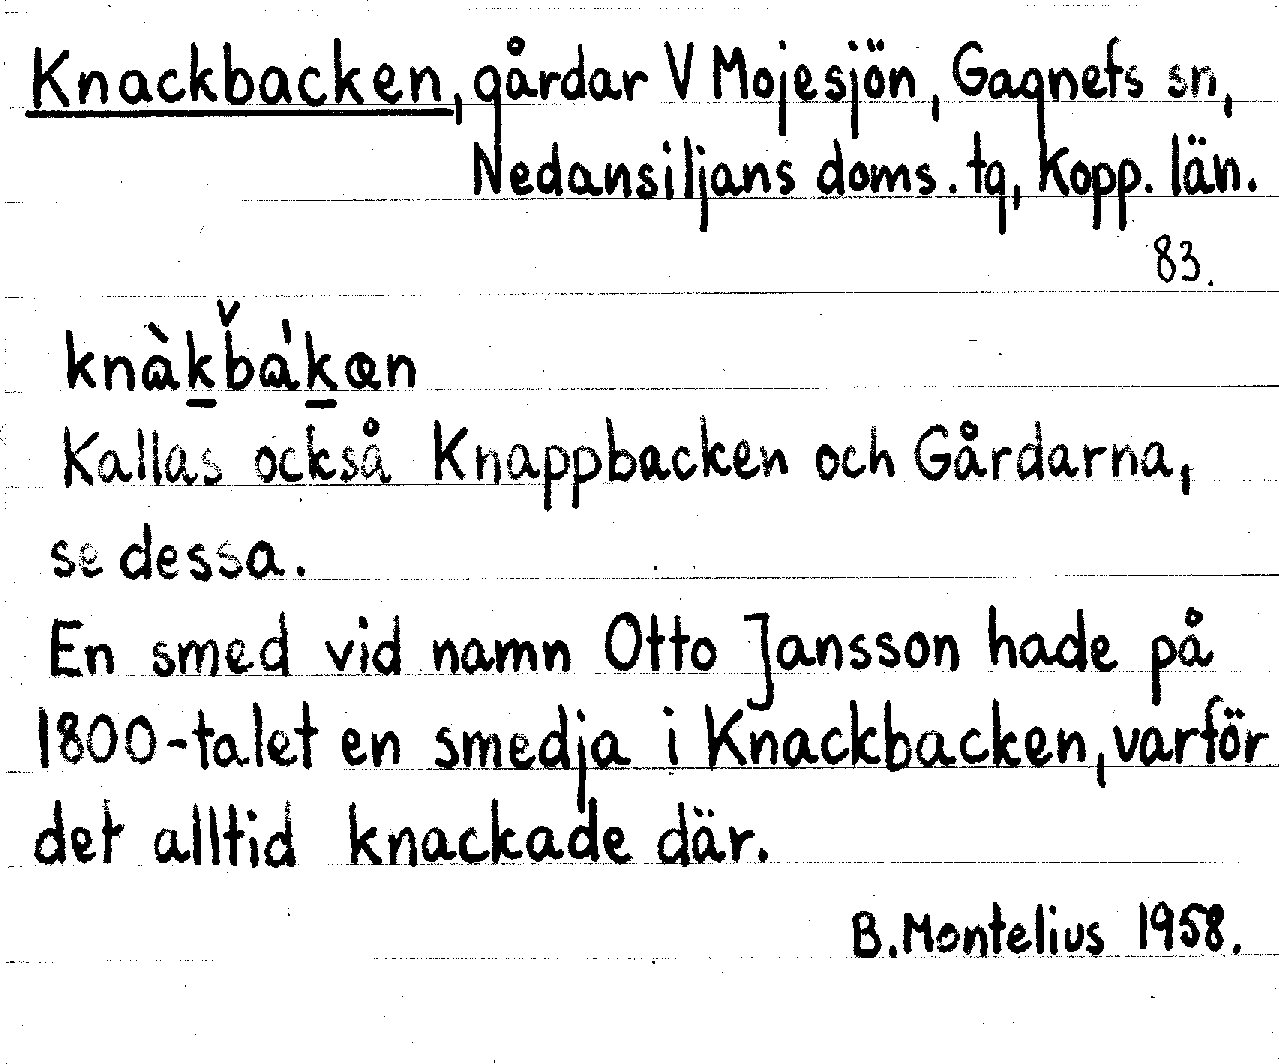 Knackbacken, gårdar V Mojesjön, Gagnefs sn,
Nedansiljans doms. tg, Kopp. län.
83.
knàk̲b̌ák̲œn
Kallas också Knappbacken och Gårdarna,
se dessa.
En smed vid namn Otto Jansson hade på
1800-talet en smedja i Knackbacken, varför
det alltid knackade där.
B. Montelius 1958.